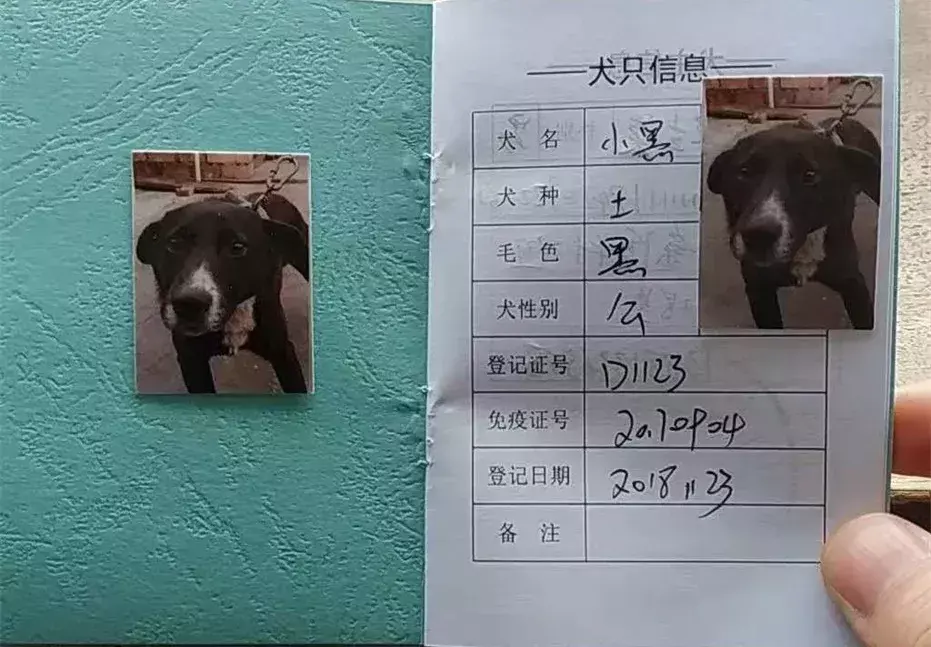 犬只信息
犬 名 小黑
犬 种 土
毛 色 黑
犬性别 公
登记证号 D1123
免疫证号 20170904
登记日期 2018 11 23
备 注